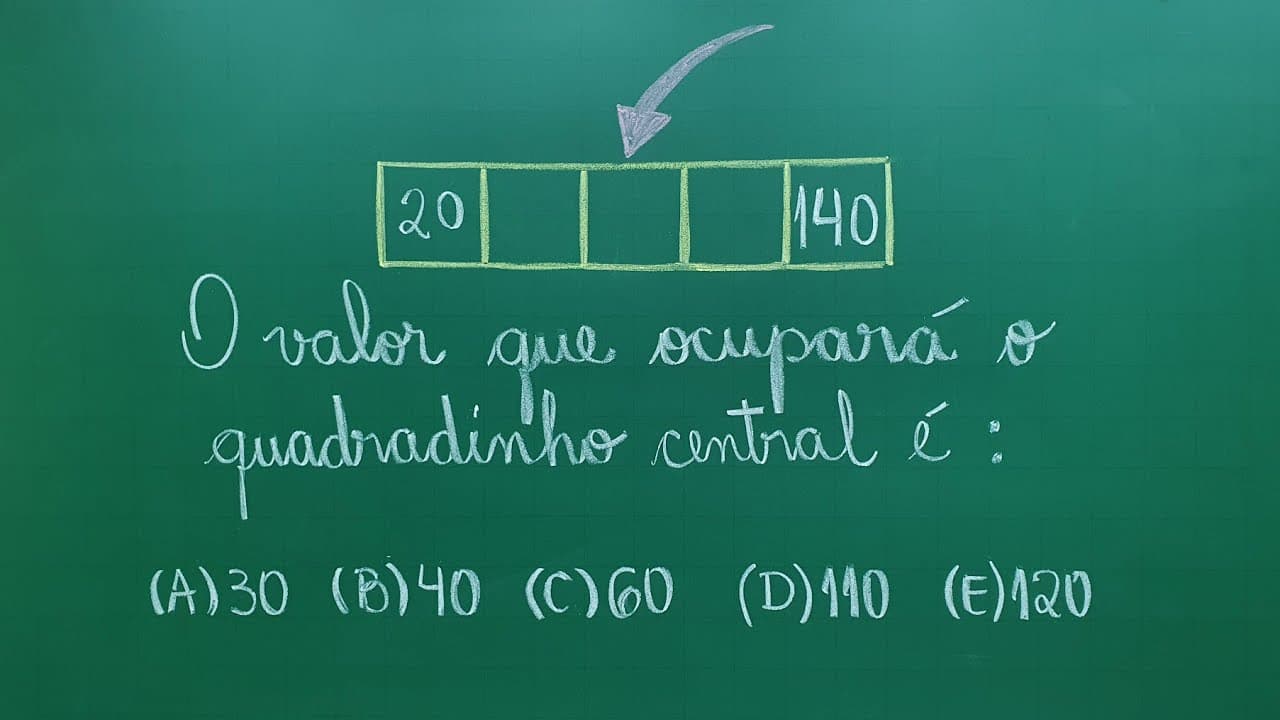 20 140
O valor que ocupará o
quadradinho central é:
(A) 30 (B) 40 (C) 60 (D) 110 (E) 120